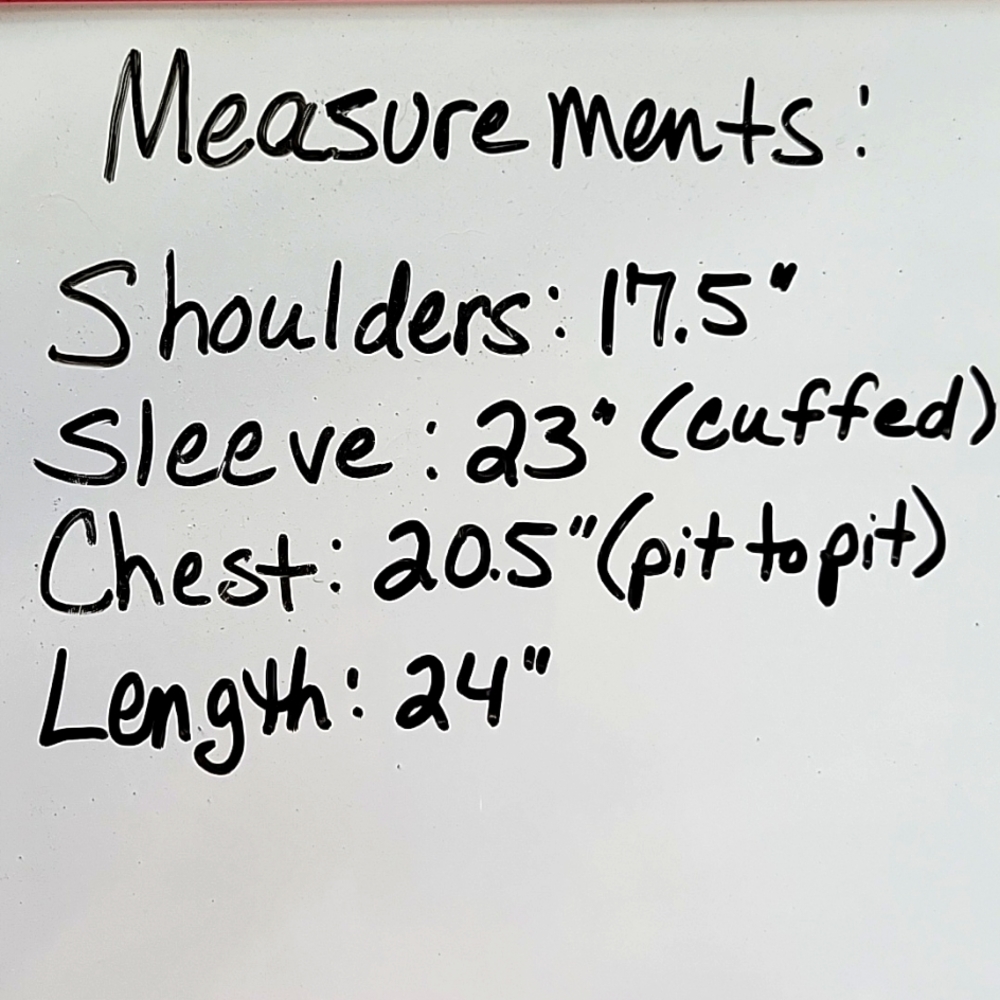 Measurements:
Shoulders: 17.5"
Sleeve: 23" (cuffed)
Chest: 20.5" (pit to pit)
Length: 24"